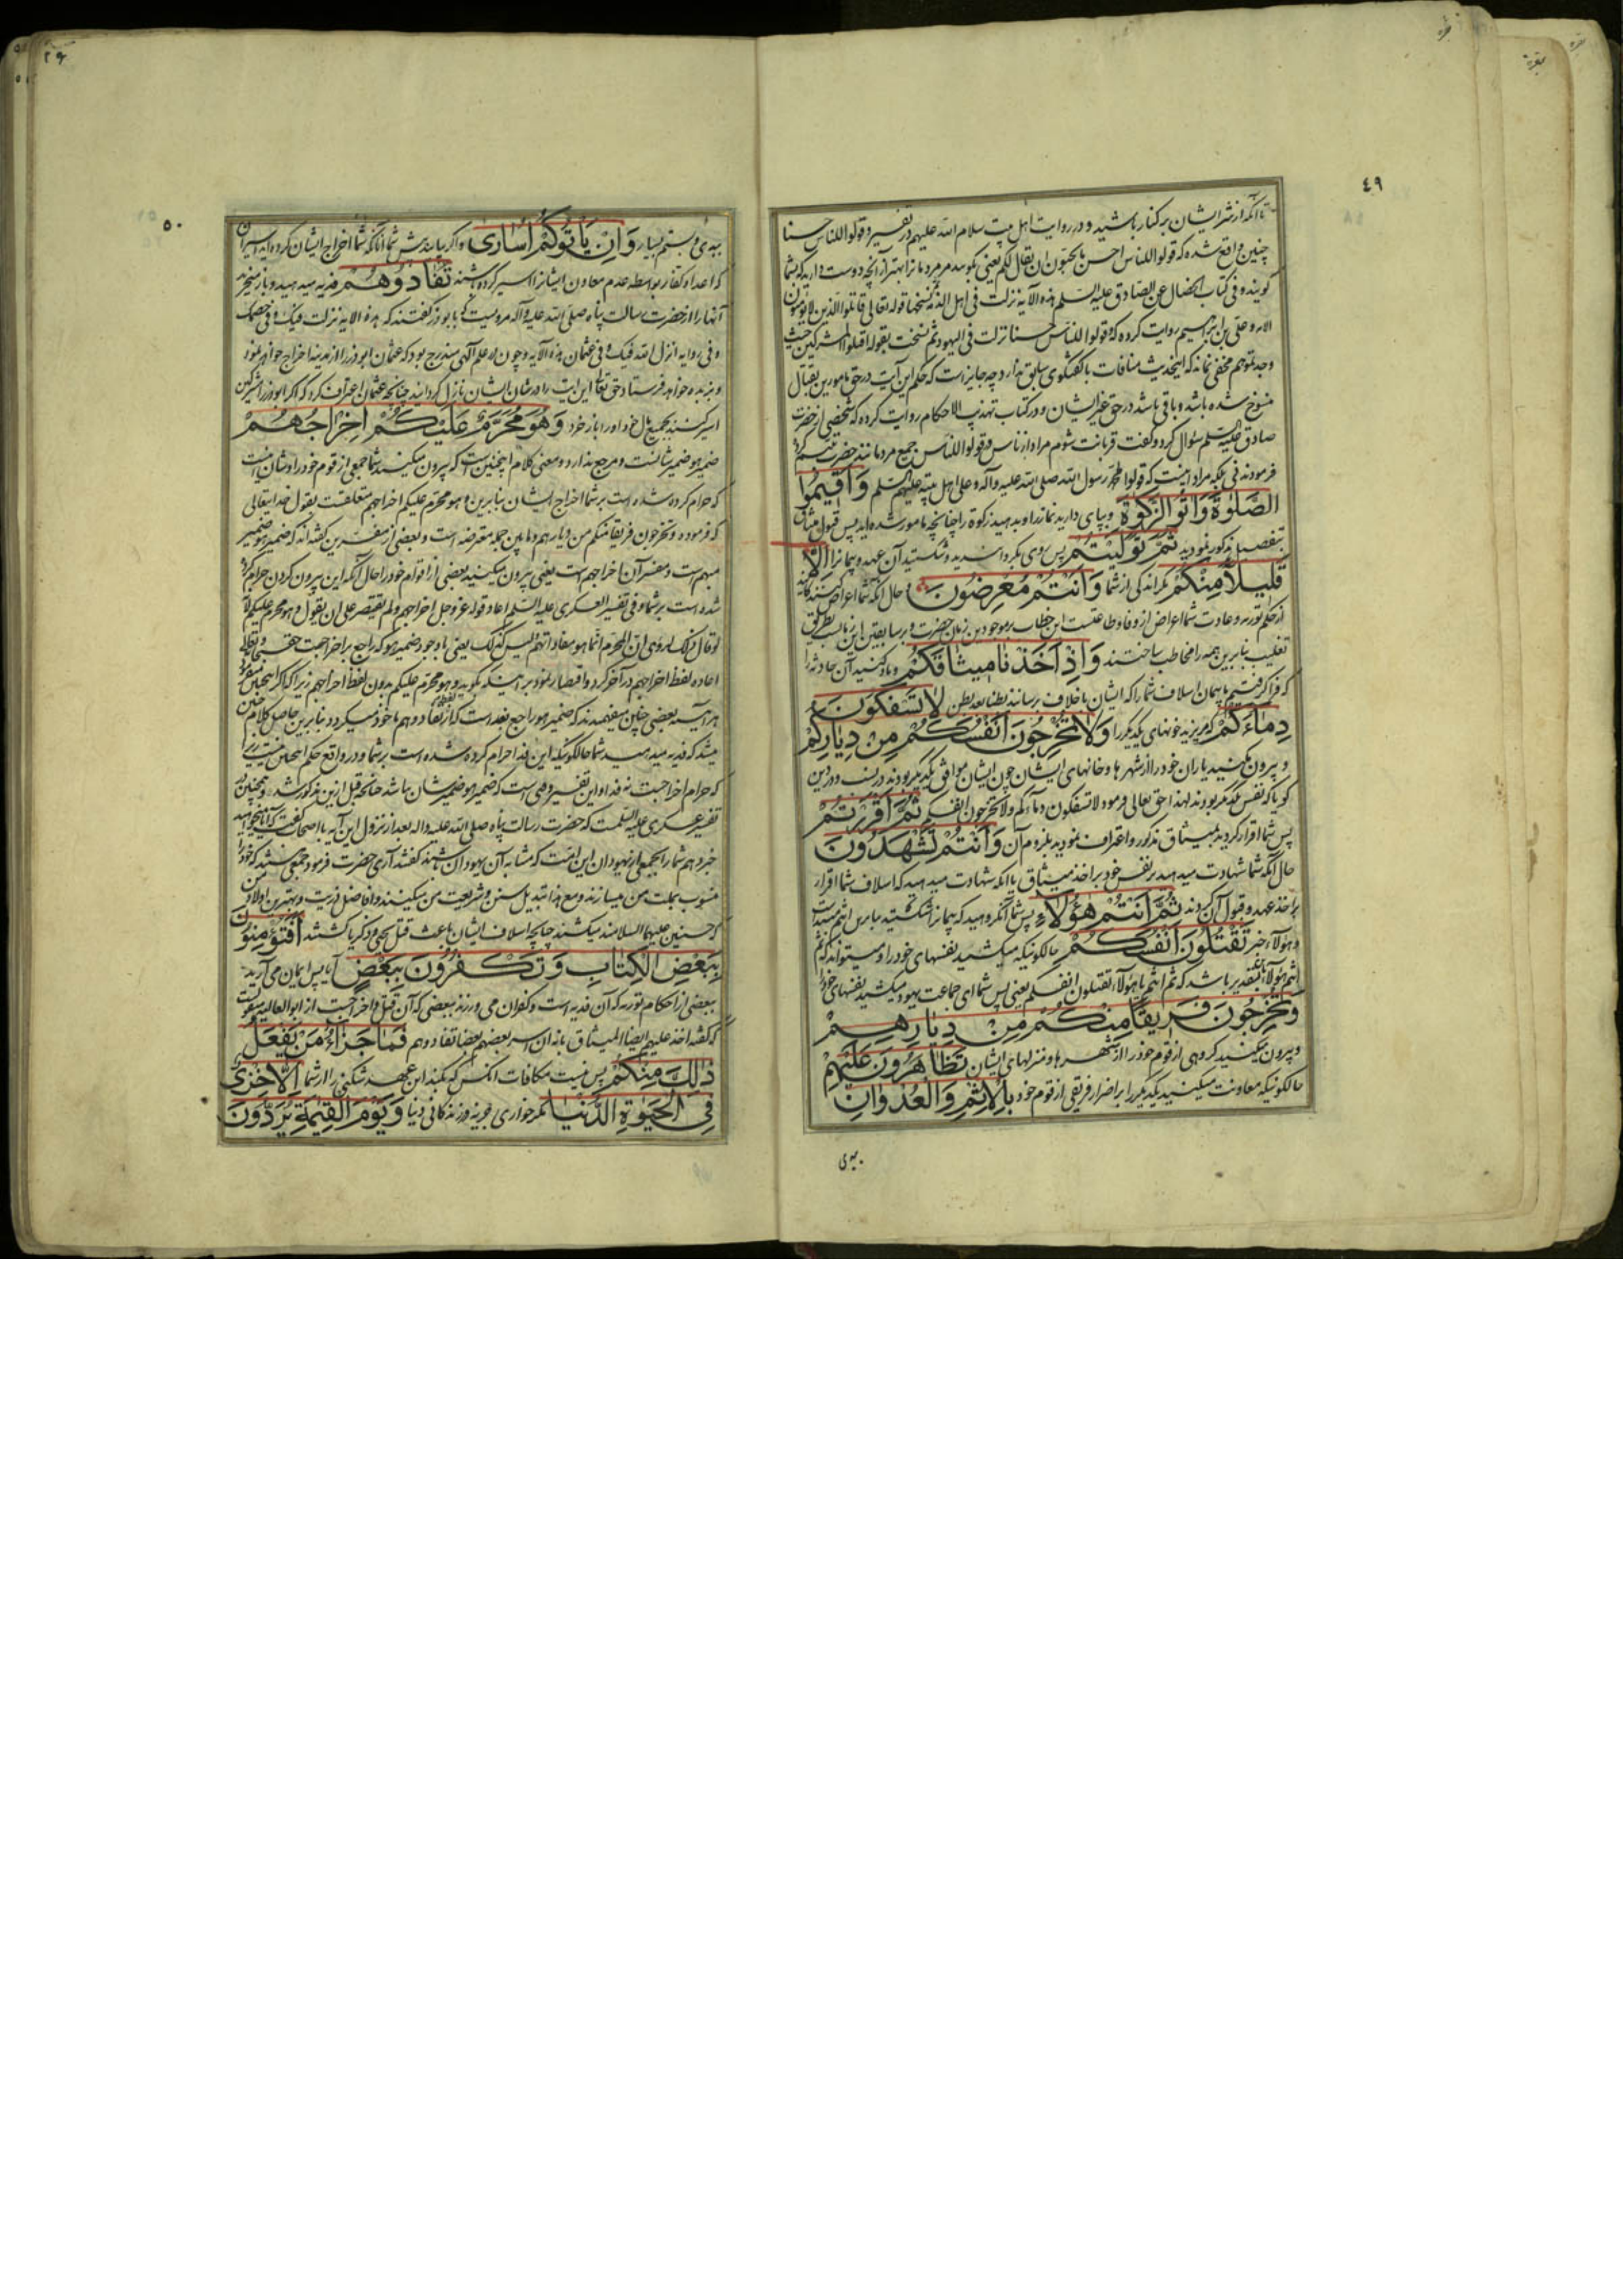 ٤٩
تا آنکه از شر ایشان بر کنار باشید و در روایت اهل بیت سلام الله علیهم در تفسیر و قولوا للناس حسنا
چنین واقع شده که قولوا للناس احسن ما تحبون ان یقال لکم یعنی بگوئید مر مردمانرا بهتر از آنچه دوست دارید که بشما
گویند و فی کتاب الخصال عن الصادق علیه السلم هذه الآیه نزلت فی اهل الذمة نسخها قوله تعالی قاتلوا الذین لا یؤمنون
الآیه و علی بن ابراهیم روایت کرده که و قولوا للناس حسنا نزلت فی الیهود ثم نسخت بقوله اقتلوا المشرکین حیث
وجدتموهم مخفی نماند که اینحدیث منافات با گفتگوی سابق ندارد چه جایز است که حکم این آیت در حق مامورین بقتال
منسوخ شده باشد و باقی باشد در حق غیر ایشان و در کتاب تهذیب الاحکام روایت کرده که شخصی از حضرت
صادق علیه السلم سؤال کرد و گفت قربانت شوم مراد از ناس و قولوا للناس جمیع مردمانند حضرت تبسم کرد
فرمودند نی بلکه مراد اینست که قولوا محمد رسول الله صلی الله علیه وآله و علی اهل بیته علیهم السلم وَاَقیمُوا
الصَّلوٰةَ وَاٰتُوا الزَّکوٰةَ و بپای دارید نماز را و بدهید زکوة را چنانچه مامور شده‌اید پس قبول میثاق
بتفصیل مذکور نمودید ثُمَّ تَوَلَّیْتُمْ پس روی بگردانیدید و شکستید آن عهد و پیمانرا اِلّا
قَلیلًا مِنْکُمْ مگر اندکی از شما وَاَنْتُمْ مُعْرِضُونَ و حال آنکه شما اعراض کننده‌گانید
از حکم توریه و عادت شما اعراض از وفا و طاعتست این خطاب بر موجودین زمان حضرت و بر سابقین این زمانست بطریق
تغلیب بنابرین همه را مخاطب ساختند وَاِذْ اَخَذْنا میثاقَکُمْ و یاد کنید آن حادثه را
که فرا گرفتیم ما پیمان اسلاف شما را که ایشان باخلاف برسانند بطنا بعد بطن لا تَسْفِکُونَ
دِماءَکُمْ که مریزید خونهای یکدیگر را وَلا تُخْرِجُونَ اَنْفُسَکُمْ مِنْ دِیارِکُمْ
و بیرون مکنید یاران خود را از شهرها و خانهای ایشان چون ایشان موافق یکدیگر بودند در نسب و در دین
گویا که نفس یکدیگر بودند لهذا حق تعالی فرمود لا تسفکون دماءکم ولا تخرجون انفسکم ثُمَّ اَقْرَرْتُمْ
پس شما اقرار کردید بمیثاق مذکور و اعتراف نمودید بلزوم آن وَاَنْتُمْ تَشْهَدُونَ
حال آنکه شما شهادت میدهید بر نفس خود بر اخذ میثاق یا آنکه شهادت میدهید که اسلاف شما اقرار
بر اخذ عهد و قبول آن کردند ثُمَّ اَنْتُمْ هٰؤُلاءِ پس شما آنگروهید که پیمانرا شکستید بنابرین انتم مبتداست
و هؤلاء خبر تَقْتُلُونَ اَنْفُسَکُمْ حالکونیکه میکشید نفسهای خود را و میتواند که ثم
انتم هؤلاء بتقدیر یا باشد که ثم انتم یا هؤلاء تقتلون انفسکم یعنی پس شما ای جماعت یهود میکشید نفسهای خود را
وَتُخْرِجُونَ فَریقًا مِنْکُمْ مِنْ دِیارِهِمْ
و بیرون میکنید گروهی از قوم خود را از شهرها و منزلهای ایشان تَظاهَرُونَ عَلَیْهِمْ
حالکونیکه معاونت میکنید یکدیگر را بر اضرار فریقی از قوم خود بِالْاِثْمِ وَالْعُدْوانِ
ببدی
٢٩
٥٠
ببدی و ستم بسیار وَاِنْ یَاْتُوکُمْ اُسارىٰ و اگر بیایند پیش شما آنانکه شما اخراج ایشان کرده‌اید اسیران
که اعدا و کفار بواسطه عدم معاون ایشانرا اسیر کرده باشند تُفادُوهُمْ فدیه میدهید و باز میخرید
آنها را از حضرت رسالت پناه صلی الله علیه وآله مرویست که با بوذر گفتند که هذه الایه نزلت فیک و فی خصمک
و فی روایه انزل الله فیک و فی عثمان هذه الآیه و چون در علم الهی مندرج بود که عثمان ابوذر را از مدینه اخراج خواهد نمود
و بربده خواهد فرستاد حق تعالی این آیت را در شان ایشان نازل گردانید چنانچه عثمان اعتراف کرد که اگر ابوذر را مشرکین
اسیر کنند بجمیع مال خود او را باز خرد وَهُوَ مُحَرَّمٌ عَلَیْکُمْ اِخْراجُهُمْ
ضمیر هو ضمیر شانست و مرجع ندارد و معنی کلام اینچنین است که بیرون میکنید شما جمعی از قوم خود را و شان اینست
که حرام کرده شده است بر شما اخراج ایشان بنابرین و هو محرم علیکم اخراجهم متعلقست بقول خدایتعالی
که فرموده و تخرجون فریقا منکم من دیارهم و مابین جمله معترضه است و بعضی از مفسرین گفته‌اند که ضمیر هو ضمیر
مبهم است و مفسر آن اخراجهم است یعنی بیرون میکنید بعضی از اقوام خود را حال آنکه این بیرون کردن حرام کرده
شده است بر شما و فی تفسیر العسکری علیه السلم اعاد قوله عز وجل اخراجهم ولم یقتصر علی ان یقول و هو محرم علیکم لانه
لو قال ذلک لرؤی ان المحرم انما هو مفاداتهم لیس کذلک یعنی باوجود ضمیر هو که راجع باخراجست حقتعالی
اعاده لفظ اخراجهم در آخر کرد و اقتصار ننمود بر اینکه بگوید و هو محرم علیکم بدون لفظ اخراجهم زیرا که اگر اینچنین میفرمود
هر آینه بعضی چنین میفهمیدند که ضمیر هو راجع بفداست که از لفظ تفادوهم ماخوذ میگردد بنابرین حاصل کلام چنین
میشد که فدیه میدهید شما حالکونیکه این فدا حرام کرده شده است بر شما و در واقع حکم اینچنین نیست زیرا
که حرام اخراجست نه فدا و این تفسیر وقتی است که ضمیر هو ضمیر شان نباشد چنانچه قبل ازین مذکور شد و همچنین در
تفسیر عسکری علیه السلمست که حضرت رسالت پناه صلی الله علیه واله بعد از نزول این آیه با اصحاب گفت که آیا میخواهید
خبر دهم شما را بجمعی از یهودان این امت که مشابه آن یهودان باشند گفتند آری حضرت فرمود جمعی هستند که خود را
منسوب بملت من میسازند و مع هذا تبدیل سنن و شریعت من میکنند و افاضل ذریت و بهترین اولاد من
که حسنین علیهما السلامند میکشند چنانچه اسلاف ایشان باعث قتل یحیی و زکریا گشتند اَفَتُؤْمِنُونَ
بِبَعْضِ الْکِتابِ وَتَکْفُرُونَ بِبَعْضٍ آیا پس ایمان می آرید
ببعضی از احکام توریه که آن فدیه است و کفران می ورزند ببعضی که آن قتل و اخراجست از ابوالعالیه منقولست
که گفته اخذ علیهم ایضا المیثاق بانه ان اسر بعضهم بعضا تفادوهم فَما جَزاءُ مَنْ یَفْعَلُ
ذٰلِکَ مِنْکُمْ پس نیست مکافات آنکس که بکند این عهد شکنی را از شما اِلّا خِزْیٌ
فِی الْحَیٰوةِ الدُّنْیا مگر خواری و جزیه در زندگانی دنیا وَیَوْمَ الْقِیٰمَةِ یُرَدُّونَ